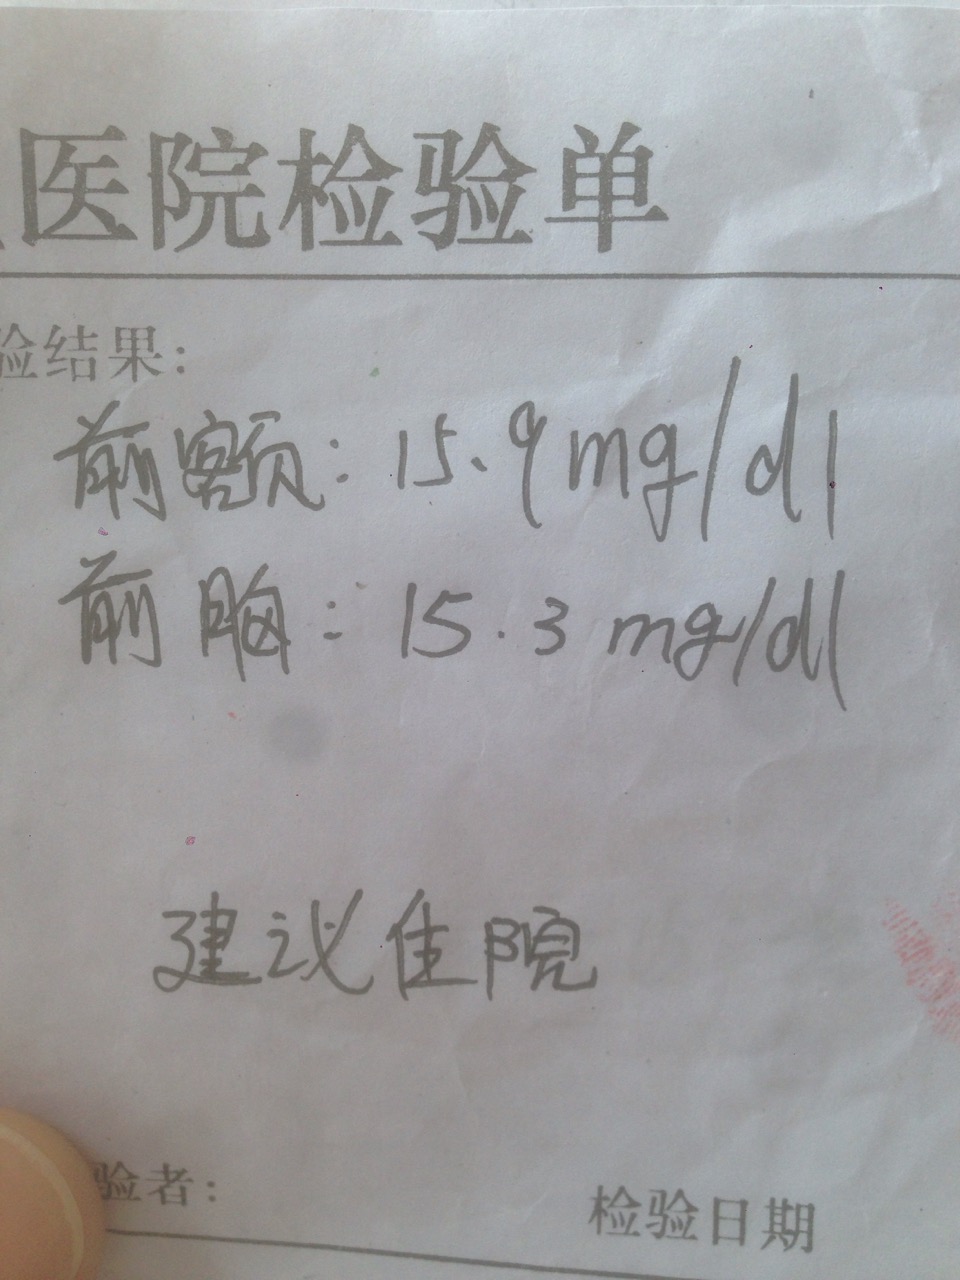 医院检验单
验结果:
前额: 15.9mg/dl
前胸: 15.3 mg/dl
建议住院
验者:
检验日期